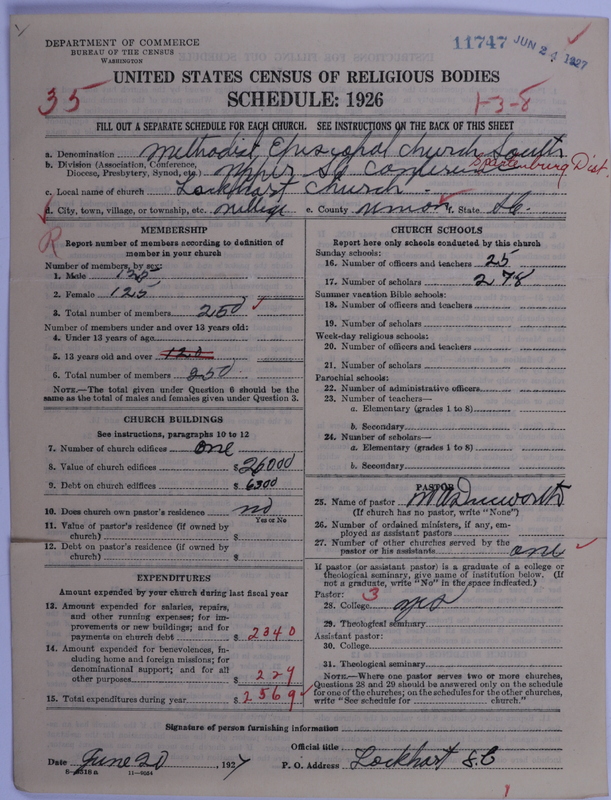 DEPARTMENT OF COMMERCE
BUREAU OF THE CENSUS
WASHINGTON
11747 JUN 24 1927
UNITED STATES CENSUS OF RELIGIOUS BODIES
SCHEDULE: 1926
35
1-3-8
FILL OUT A SEPARATE SCHEDULE FOR EACH CHURCH. SEE INSTRUCTIONS ON THE BACK OF THIS SHEET
a. Denomination Methodist Episcopal Church South
b. Division (Association, Conference, Diocese, Presbytery, Synod, etc.) Upper SC Conference Spartanburg Dist.
c. Local name of church Lockhart Church
d. City, town, village, or township, etc. village e. County Union f. State SC
R
MEMBERSHIP
Report number of members according to definition of
member in your church
Number of members, by sex:
1. Male 125
2. Female 125
3. Total number of members 250
Number of members under and over 13 years old:
4. Under 13 years of age
5. 13 years old and over 120
6. Total number of members 250
NOTE.—The total given under Question 6 should be the
same as the total of males and females given under Question 3.
CHURCH BUILDINGS
See instructions, paragraphs 10 to 12
7. Number of church edifices one
8. Value of church edifices $ 26000
9. Debt on church edifices $ 6300
10. Does church own pastor's residence no
Yes or No
11. Value of pastor's residence (if owned by
church) $
12. Debt on pastor's residence (if owned by
church) $
EXPENDITURES
Amount expended by your church during last fiscal year
13. Amount expended for salaries, repairs,
and other running expenses; for im-
provements or new buildings; and for
payments on church debt $ 2340
14. Amount expended for benevolences, in-
cluding home and foreign missions; for
denominational support; and for all
other purposes $ 229
15. Total expenditures during year $ 2569
CHURCH SCHOOLS
Report here only schools conducted by this church
Sunday schools:
16. Number of officers and teachers 25
17. Number of scholars 278
Summer vacation Bible schools:
18. Number of officers and teachers
19. Number of scholars
Week-day religious schools:
20. Number of officers and teachers
21. Number of scholars
Parochial schools:
22. Number of administrative officers
23. Number of teachers—
a. Elementary (grades 1 to 8)
b. Secondary
24. Number of scholars—
a. Elementary (grades 1 to 8)
b. Secondary
PASTOR
25. Name of pastor
(If church has no pastor, write "None")
26. Number of ordained ministers, if any, em-
ployed as assistant pastors
27. Number of other churches served by the
pastor or his assistants one
If pastor (or assistant pastor) is a graduate of a college or
theological seminary, give name of institution below. (If
not a graduate, write "No" in the space indicated.)
Pastor: 3
28. College yes
29. Theological seminary
Assistant pastor:
30. College
31. Theological seminary
NOTE.—Where one pastor serves two or more churches,
Questions 28 and 29 should be answered only on the schedule
for one of the churches; on the schedules for the other churches,
write "See schedule for church."
Signature of person furnishing information
Official title
Date June 20, 1927 P. O. Address Lockhart S.C
11-9024